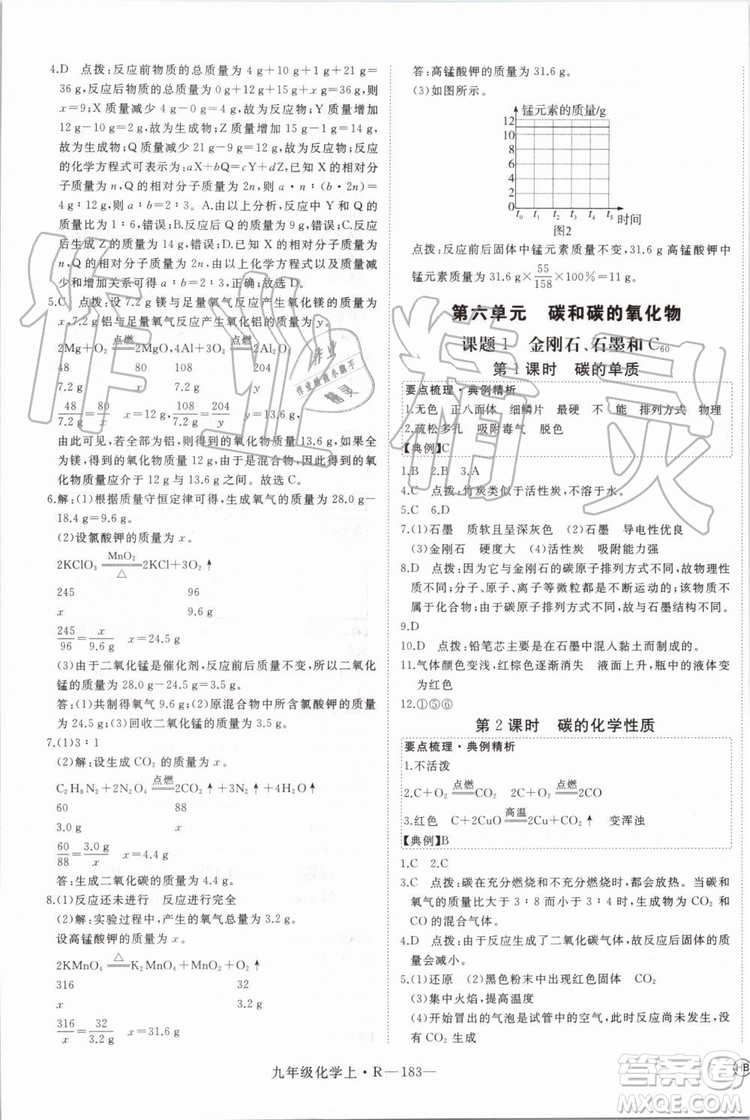 4.D　点拨：反应前物质的总质量为 4 g＋10 g＋1 g＋21 g＝
36 g，反应后物质的总质量为 0 g＋12 g＋15 g＋x g＝36 g，则
x＝9；X 质量减少 4 g，故为反应物；Y 质量增加
12 g－10 g＝2 g，故为生成物；Z 质量增加 15 g－
1 g＝14 g，故为生成物；Q 质量减少 21 g－9 g＝12 g，故为反应物；反应
的化学方程式可表示为：aX＋bQ＝cY＋dZ，X、Q 的相对分
子质量为 a∶b＝2∶3。
为 1∶6，错误；B.反应后 Q 的质量为 9 g，错误；C.
反应后生成 Z 的质量为 14 g，错误；D.
减少和增加的质量，正确，故选 D。
5.C　点拨：设 7.2 g 镁与足量氧气反应产生氧化镁的质量为 x，
产生氧化铝的质量为 y。
2Mg＋O₂ 点燃 2MgO　4Al＋3O₂ 点燃 2Al₂O₃
48　80　108　204
7.2 g　x　7.2 g　y
48/7.2 g＝80/x　x＝12 g　108/7.2 g＝204/y　y＝13.6 g
由此可见，若全部为铝，得到的氧化物质量为 13.6 g，若全
为镁，得到的氧化物质量为 12 g，由于是混合物，因此氧
化物质量应介于 12 g 与 13.6 g 之间。故选 C。
6.解：(1)根据质量守恒定律可得，生成氧气的质量为 28.0 g－
18.4 g＝9.6 g。
(2)设氯酸钾的质量为 x。
2KClO₃ MnO₂ △ 2KCl＋3O₂↑
245　96
x　9.6 g
245/96＝x/9.6 g　x＝24.5 g
(3)由于二氧化锰是催化剂，反应前后质量不变，所以二氧化
锰的质量为 28.0 g－24.5 g＝3.5 g。
答：(1)共制得氧气 9.6 g；(2)原混合物中所含氯酸钾的质量
为 24.5 g；(3)回收二氧化锰的质量为 3.5 g。
7.(1)3∶1
(2)解：设生成 CO₂ 的质量为 x。
C₂H₈N₂＋2N₂O₄ 点燃 2CO₂↑＋3N₂↑＋4H₂O↑
60　88
3.0 g　x
60/88＝3.0 g/x　x＝4.4 g
答：生成二氧化碳的质量为 4.4 g。
8.(1)反应还未进行　反应进行完全
(2)解：实验过程中，产生的氧气总质量为 3.2 g。
设高锰酸钾的质量为 x。
2KMnO₄ △ K₂MnO₄＋MnO₂＋O₂↑
316　32
x　3.2 g
316/x＝32/3.2 g　x＝31.6 g
答：高锰酸钾的质量为 31.6 g。
(3)如图所示。
锰元素的质量/g
12
10
8
6
4
2
0
t₀ t₁ t₂ t₃ t₄ t₅ 时间
图2
点拨：反应前后固体中锰元素质量不变，31.6 g 高锰酸钾中
锰元素质量为 31.6 g×55/158×100%＝11 g。
第六单元　碳和碳的氧化物
课题 1　金刚石、石墨和 C₆₀
第 1 课时　碳的单质
要点梳理·典例精析
1.无色　正八面体　细鳞片　最硬　不　能　排列方式　物理
2.疏松多孔　吸附毒气　脱色
【典例】C
1.B　2.B　3.A
4.C　点拨：竹炭类似于活性炭，不溶于水。
5.C　6.D
7.(1)石墨　质软且呈深灰色　(2)石墨　导电性优良
(3)金刚石　硬度大　(4)活性炭　吸附能力强
8.D　点拨：石墨烯与金刚石的碳原子排列方式不同；分
子、原子、离子等微粒都可以直接构成物质；石墨烯与
石墨中碳原子的排列方式不同，因此不是同一种物质。
9.D
10.D　点拨：铅笔芯是在石墨中混入黏土而制成的。
11.气体颜色变浅，红棕色逐渐消失　液面上升，瓶中的液面
变为红色
12.①⑤⑥
第 2 课时　碳的化学性质
要点梳理·典例精析
1.不活泼
2.C＋O₂ 点燃 CO₂　2C＋O₂ 点燃 2CO
3.红色　C＋2CuO 高温 2Cu＋CO₂↑　变浑浊
【典例】B
1.C　2.C
3.C　点拨：碳在充分燃烧和不充分燃烧时，当碳和
氧气的质量为 3∶8 而小于 3∶4 时，生成 CO₂
和 CO 的混合气体。
4.D　点拨：由于反应生成了二氧化碳气体，故固体的质量会
不断减小。
5.(1)还原　(2)黑色粉末中出现红色固体　CO₂
(3)集中火焰，提高温度
(4)开始冒出的气泡是试管中的空气，此时反应还没有 CO₂
生成
九年级化学上·R—183—